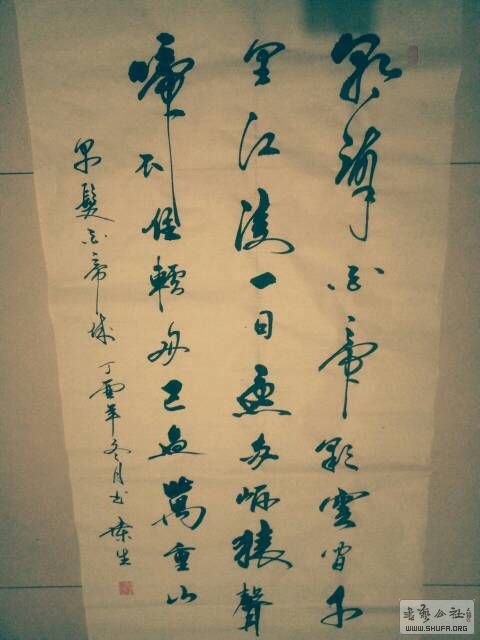 朝辭白帝彩雲間千
里江陵一日還兩岸猿聲
啼不住輕舟已過萬重山
早髮白帝城 丁酉年冬月书 生
书艺公社
WWW.SHUFA.ORG